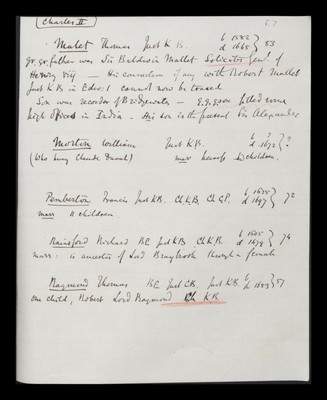 Charles II
Malet Thomas Just K.B. b 1582 d 1665 } 83
gr. gr. father was Sir Baldwin Mallet Solicitor Gen!. of
Henry VIII — His connection if any with Robert Mallet
Just K B in Edw: I cannot now be traced
Son was recorder of Bridgewater — G.g.g.son filled some
high offices in India. His son is the present Sir Alexander
Morton William Just K B. b ? d 1672 } ?
(Who hung Claude Duval) marr
Pemberton Francis Just KB. Ch.K.B, Ch C.P. b 1625 d 1697 } 72
marr 11 children.
Rainsford Richard BE Just KB Ch.KB. b 1605 d 1679 } 74
marr: is ancestor of Lord Braybrook through a female
Raymond Thomas BE Just CB. Just KB b d 1683 } 57
one child, Robert Lord Raymond Ch KB